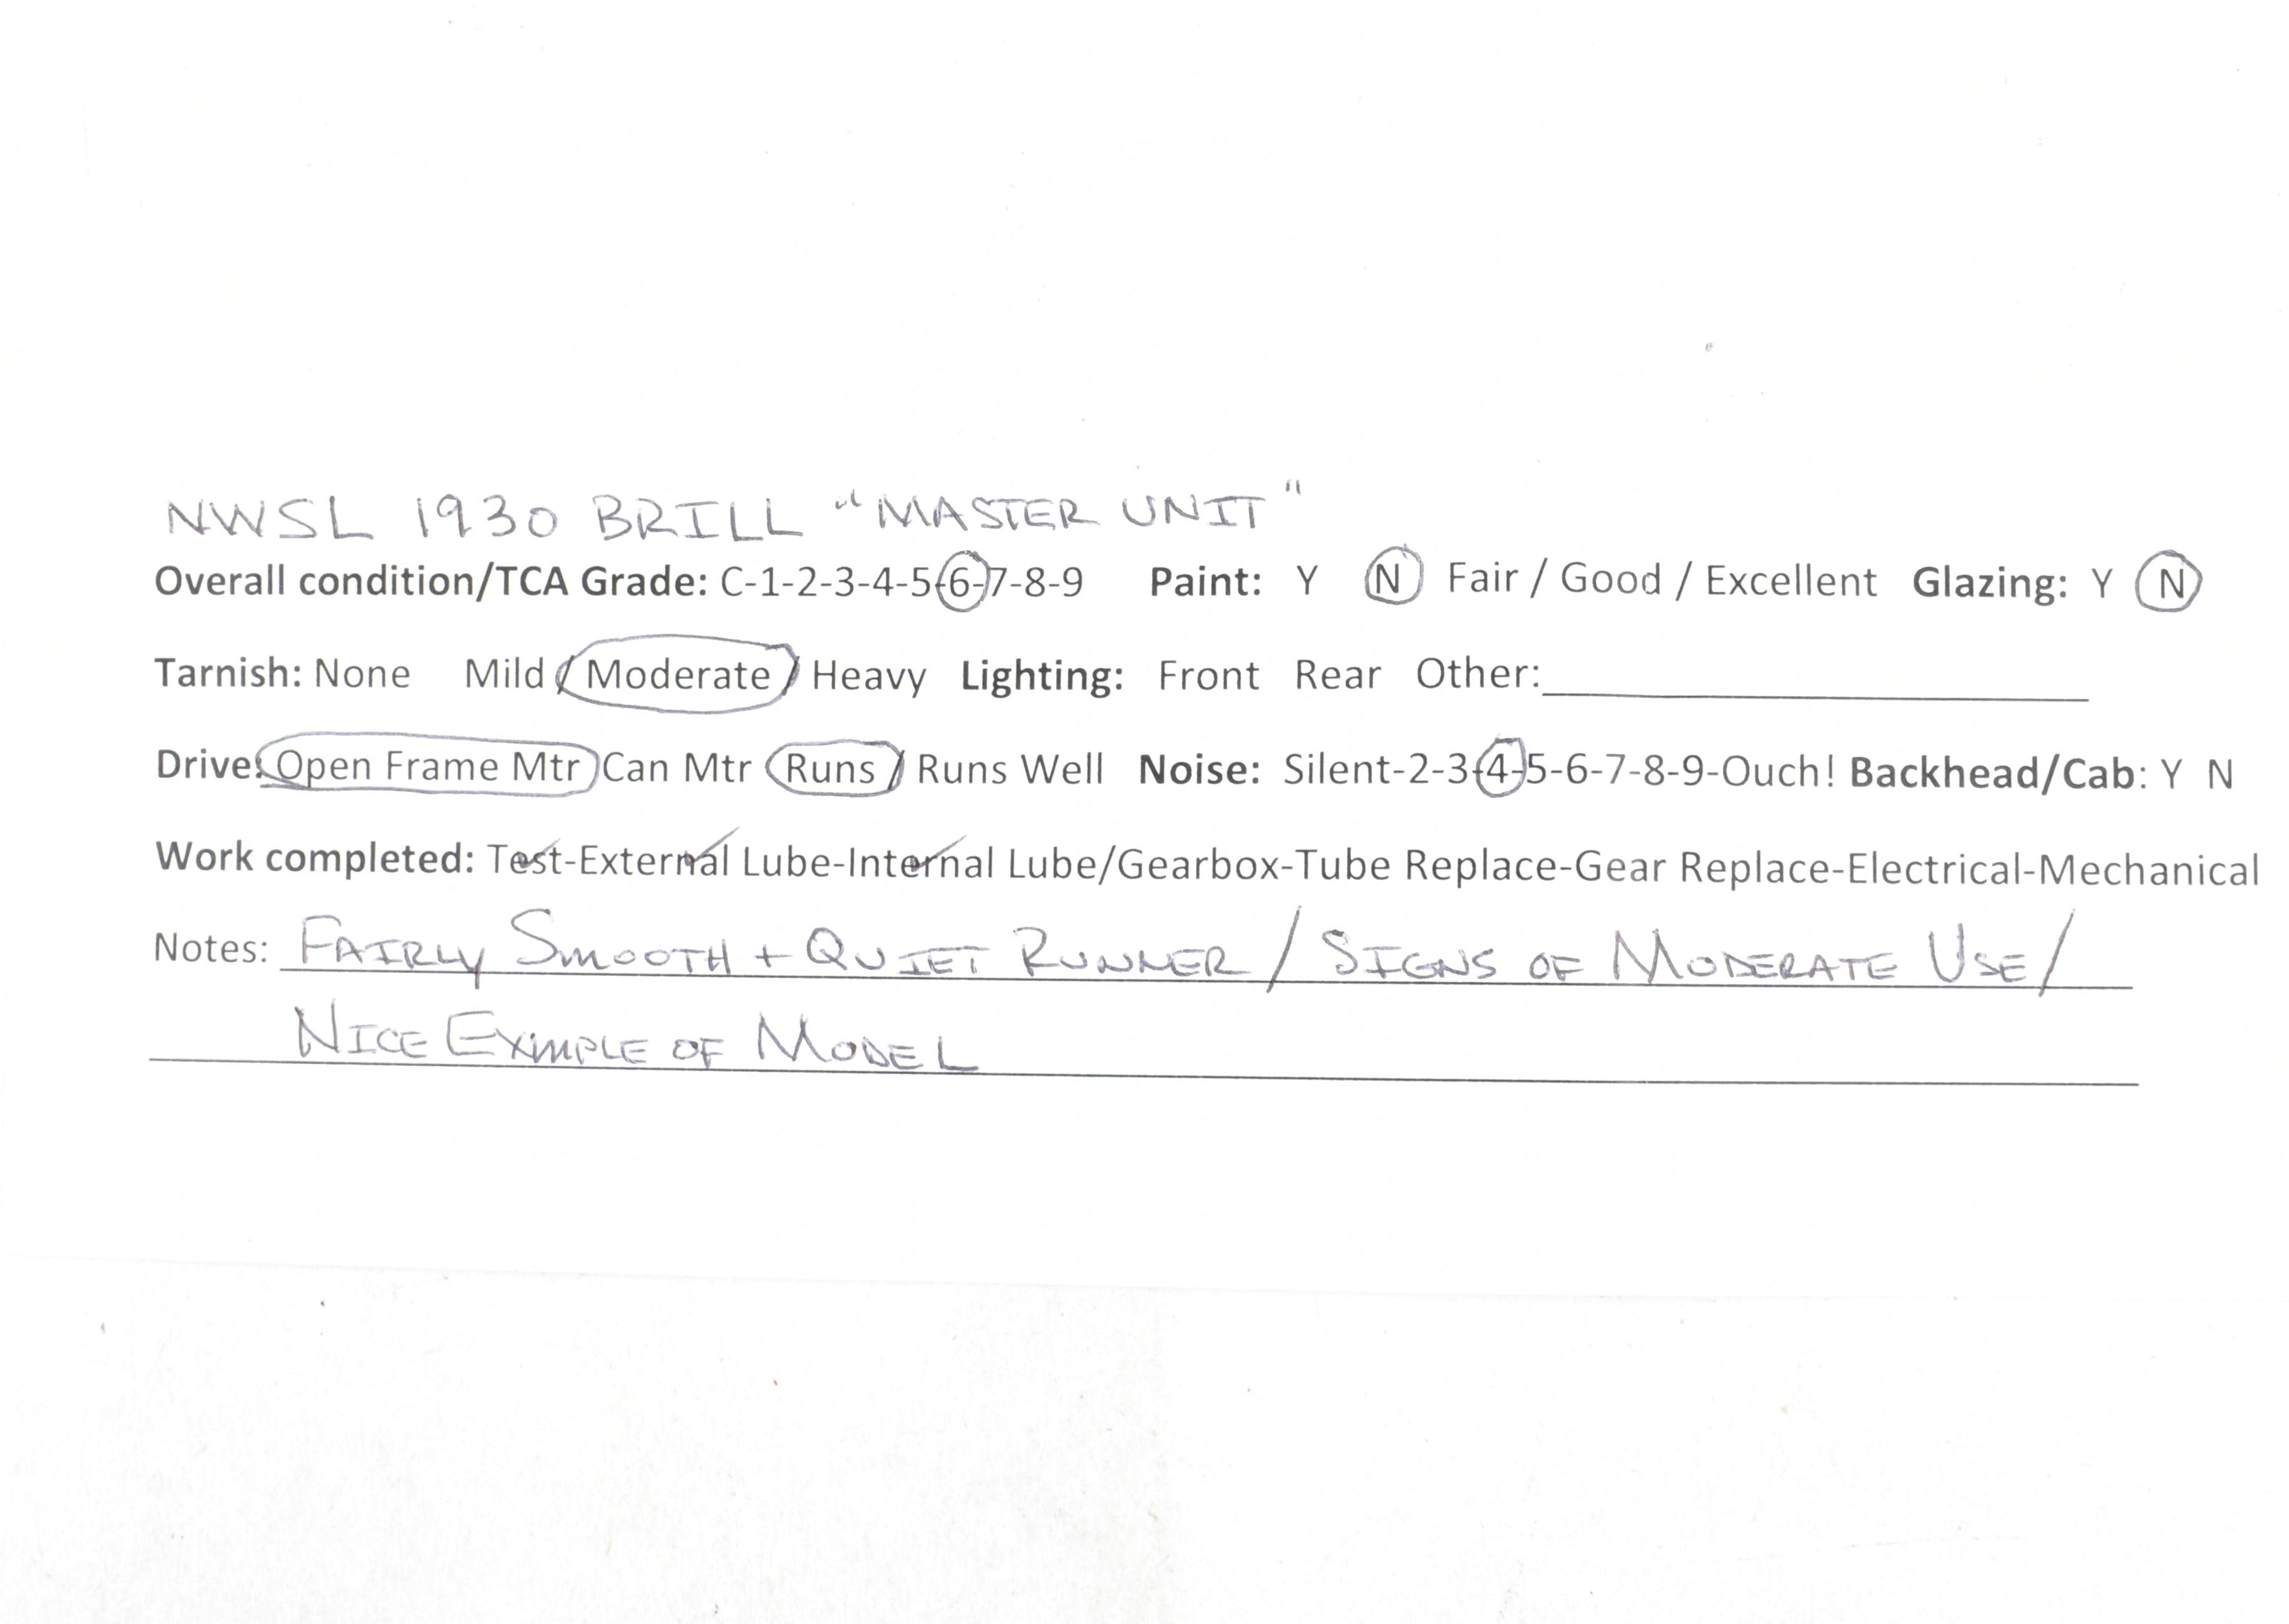 NWSL 1930 BRILL "MASTER UNIT"
Overall condition/TCA Grade: C-1-2-3-4-5-6-7-8-9 Paint: Y N Fair / Good / Excellent Glazing: Y N
Tarnish: None Mild / Moderate / Heavy Lighting: Front Rear Other:
Drive: Open Frame Mtr Can Mtr Runs / Runs Well Noise: Silent-2-3-4-5-6-7-8-9-Ouch! Backhead/Cab: Y N
Work completed: Test-External Lube-Internal Lube/Gearbox-Tube Replace-Gear Replace-Electrical-Mechanical
Notes: FAIRLY SMOOTH + QUIET RUNNER / SIGNS OF MODERATE USE /
NICE EXMPLE OF MODEL